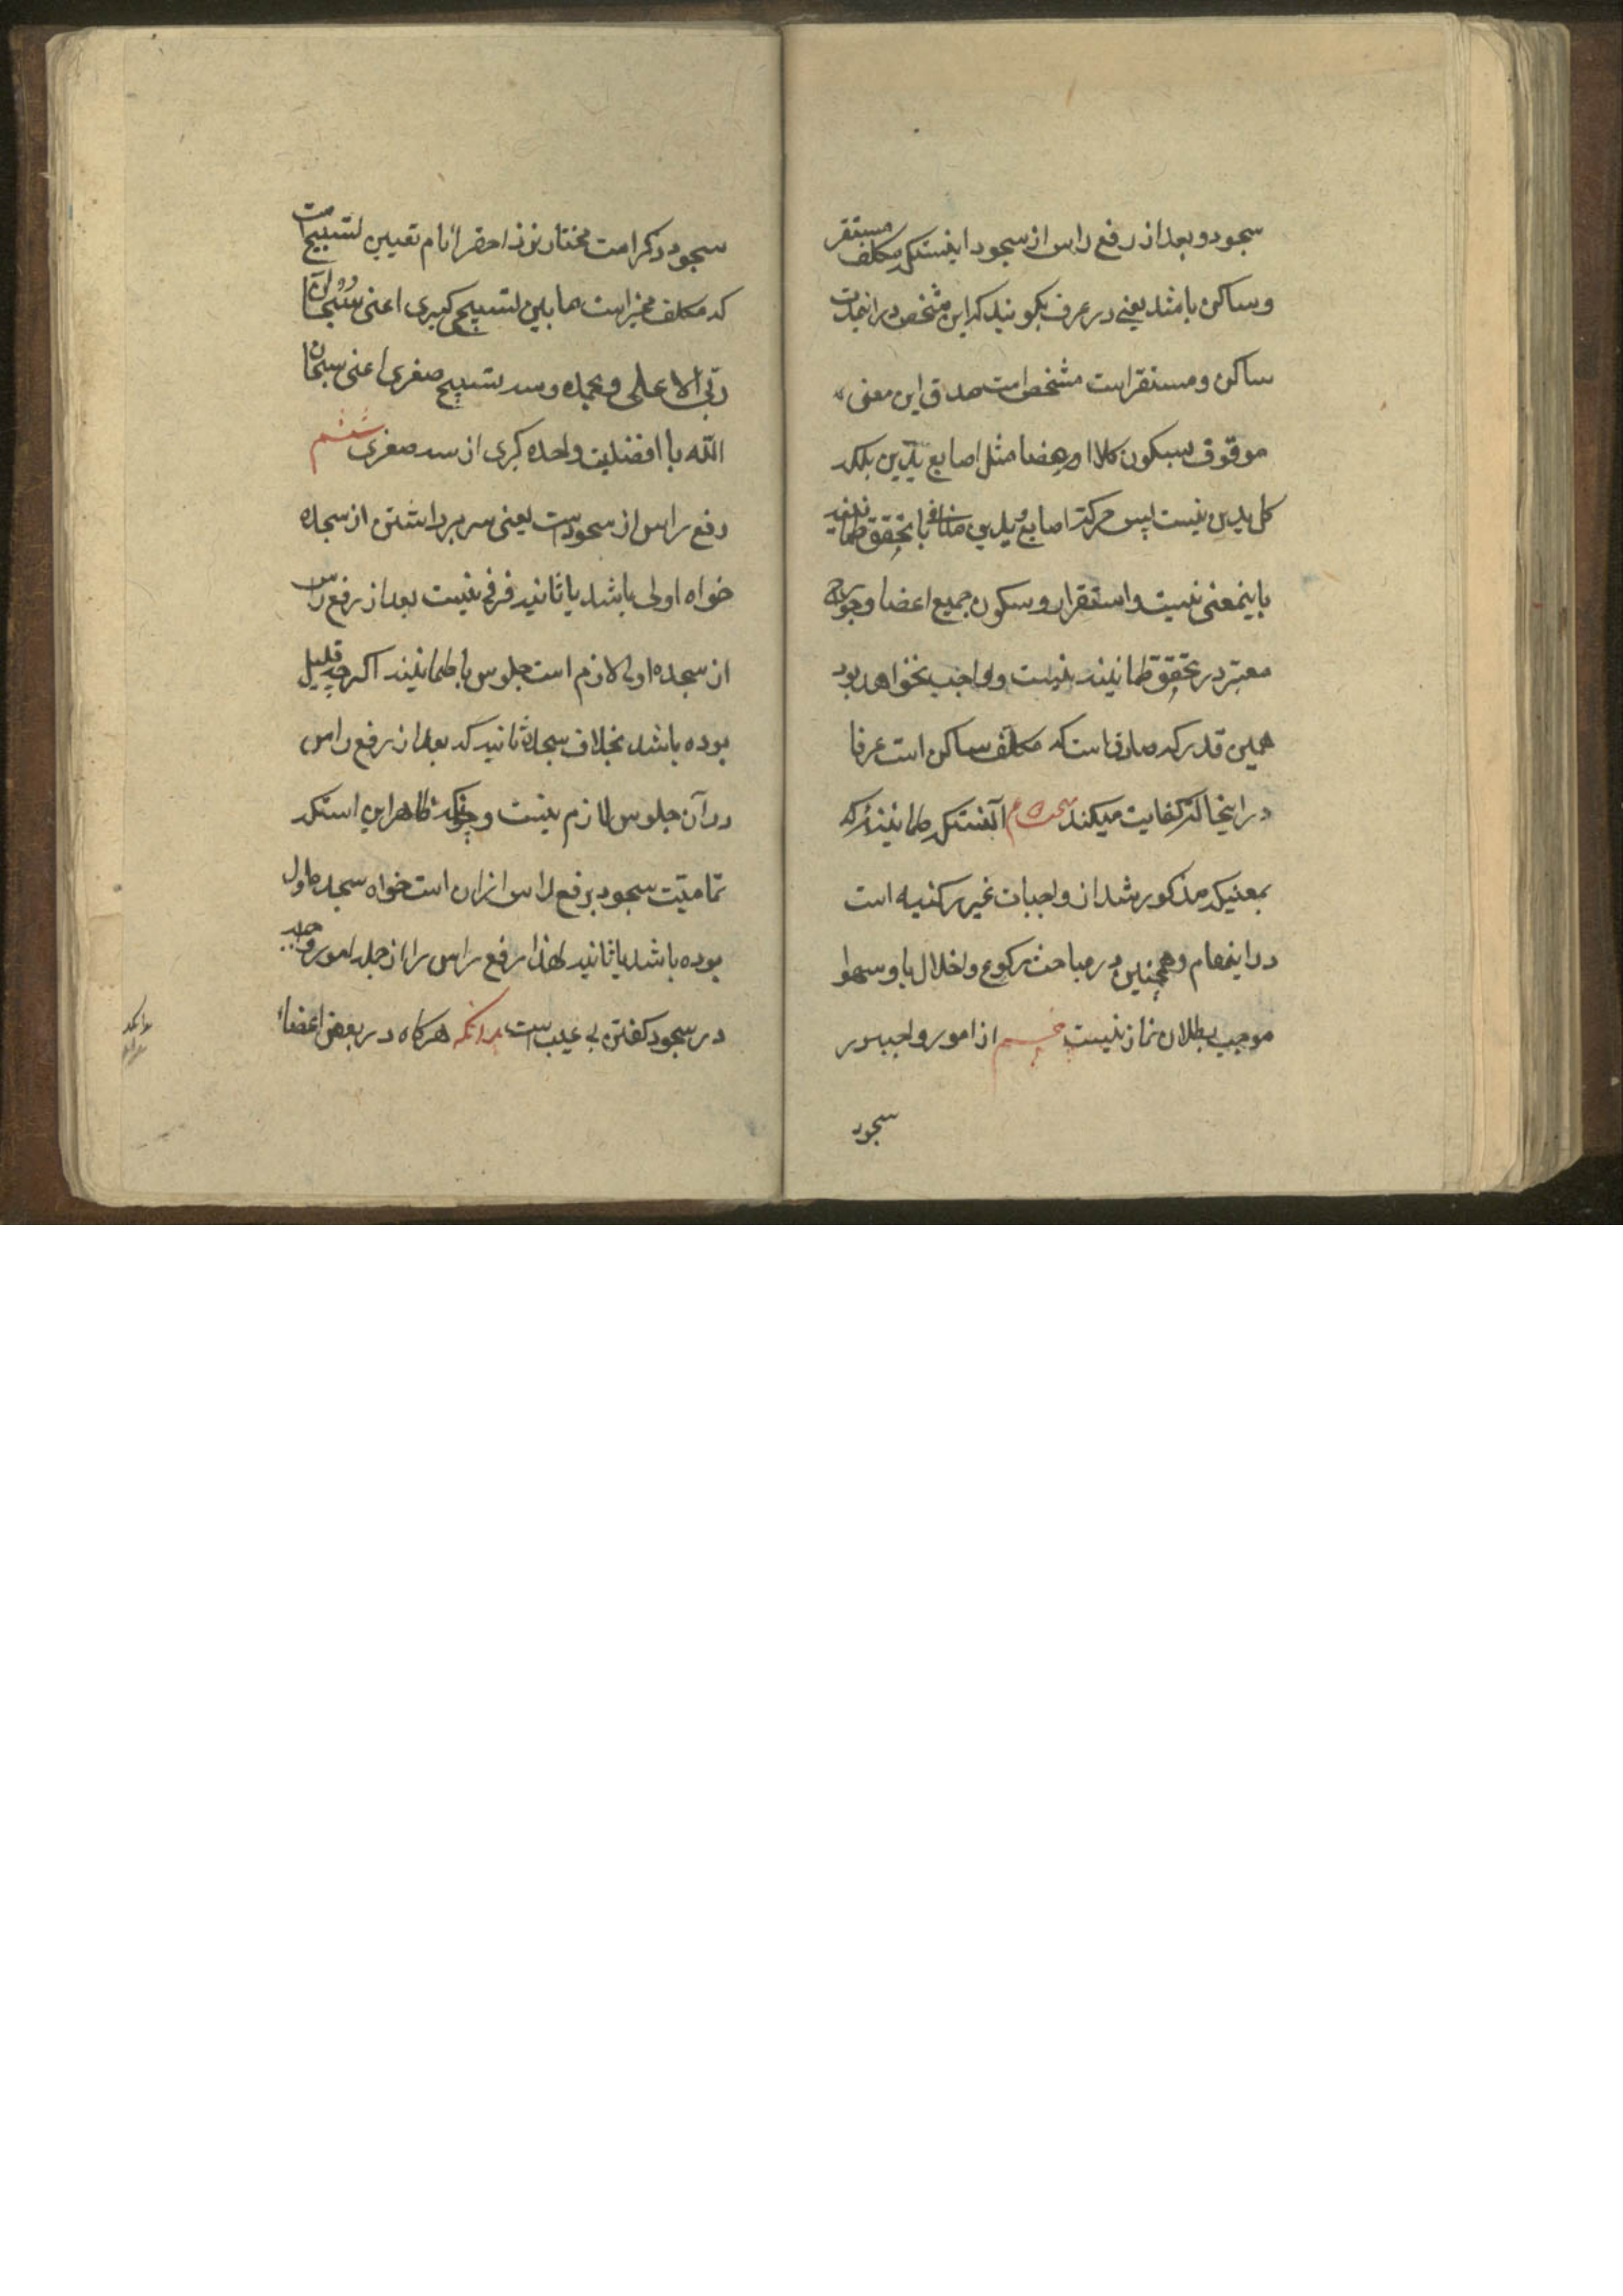 سجود و بعد از رفع راس از سجود اینستکه مکلف مستقر
و ساکن باشد یعنی در عرف بکویند که این شخص در اینمدت
ساکن و مستقر است مشخص است صدق این معنی
موقوف بسکون کل اعضا مثل اصابع یدین بلکه
کل یدین نیست پس حرکت اصابع و یدین منافی با تحقق طمانینه
باینمعنی نیست و استقرار و سکون جمیع اعضا و جوارح
معتبر در تحقق طمانینه نیست و واجب نخواهد بود
همین قدر که صادق است که مکلف ساکن است عرفا
در اینجا که کفایت میکند آنستکه طمانینه که
بمعنیکه مذکور شد از واجبات غیر رکنیه است
در اینمقام و همچنین در مباحث رکوع و اخلال باو سهوا
موجب بطلان نماز نیست پنجم از امور واجبه در
سجود
سجود ذکر است مختار نزد احقر انام تعیین تسبیح است
که مکلف مخیر است مابین تسبیح کبری اعنی سبحان
ربی الاعلی و بحمده و سه تسبیح صغری اعنی سبحان
الله با افضلیت واحده کبری از سه صغری ششم
رفع راس از سجود است یعنی سر برداشتن از سجده
خواه اولی باشد یا ثانیه فرقی نیست بعد از رفع راس
از سجده اولی لازم است جلوس با طمانینه اکرچه قلیل
بوده باشد بخلاف سجده ثانیه که بعد از رفع راس
در آن جلوس لازم نیست و چونکه ظاهر این استکه
تمامیت سجود برفع راس از ان است خواه سجده اول
بوده باشد یا ثانیه لهذا رفع راس را از جمله امور واجبه
در سجود کفتن بی عیب است بدانکه هرکاه در بعض اعضاء